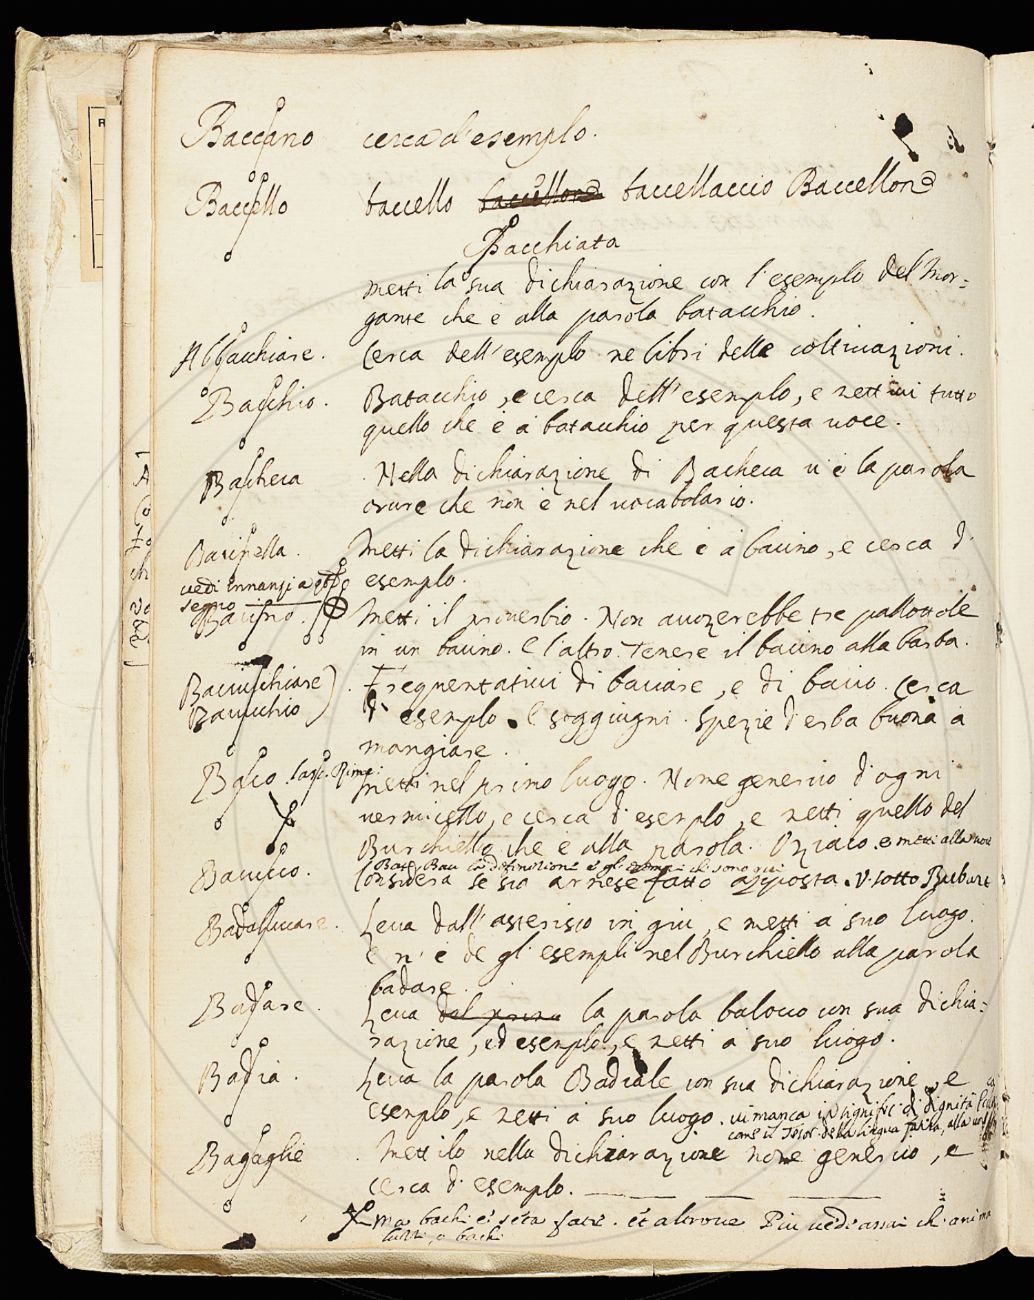 Baccano cerca d'esemplo.
Baccello baccello baccellone baccellaccio Baccellone
Bacchiata
metti la sua dichiarazione con l'esemplo del Mor=
gante che è alla parola batacchio.
Abbacchiare. Cerca dell'esemplo ne libri delle coltivazioni.
Bacchio. Batacchio, e cerca dell'esemplo, e mettivi tutto
quello che è à batacchio per questa voce.
Bacheca. Nella dichiarazione di Bacheca v'è la parola
orure che non è nel vocabolario.
Bacinella. Metti la dichiarazione che è a bacino, e cerca d'
esemplo.
vedi innanzi a questo
segno
Bacino. Metti il proverbio. Non accozzerebbe tre pallottole
in un bacino. E l'altro. Tenere il bacino alla barba.
Baciucchiare) Frequentativi di baciare, e di bacio. Cerca
Baciucchio) d'esemplo. E soggiugni. Spezie d'erba buona a
mangiare.
Baco. Lasc. Rime. metti nel primo luogo. Nome generico d'ogni
vermicello, e cerca d'esemplo, e metti quello del
Burchiello che è alla parola. Oziaco. e metti alla voce
Bau la definizione e gl'esempi che sono qui
Baciucco. Considera se sio arnese fatto apposta. V. sotto
Badaluccare. Leva dall'asterisco in giù, e metti a suo luogo.
E n'è de gl'esempli nel Burchiello alla parola
badare.
Badare. Leva dal primo la parola balocco con sua dichia=
razione, ed esemplo, e metti a suo luogo.
Badia. Leva la parola Badiale con sua dichiarazione, e
esemplo, e metti a suo luogo. vi manca in signific: di dignità
come il Tesor della lingua
Bagaglie. Mettilo nella dichiarazione nome generico, e
cerca d'esemplo.
Ma bachi è seta et altrove Più vedi assai che
o bachi